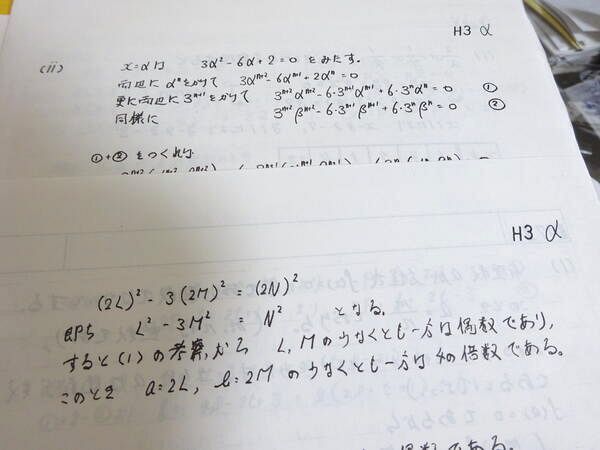 H3 α
(ii) x=αは 3α²-6α+2=0 をみたす。
両辺に αⁿをかけて 3αⁿ⁺²-6αⁿ⁺¹+2αⁿ=0
更に両辺に 3ⁿ⁺¹をかけて 3ⁿ⁺²αⁿ⁺²-6・3ⁿ⁺¹αⁿ⁺¹+6・3ⁿαⁿ=0 ①
同様に 3ⁿ⁺²βⁿ⁺²-6・3ⁿ⁺¹βⁿ⁺¹+6・3ⁿβⁿ=0 ②
①+②をつくれば
H3 α
(2L)²-3(2M)²=(2N)²
即ち L²-3M²=N² となる。
すると(1)の考察から L,Mの少なくとも一方は偶数であり,
このとき a=2L, b=2Mの少なくとも一方は4の倍数である。
倍数である。